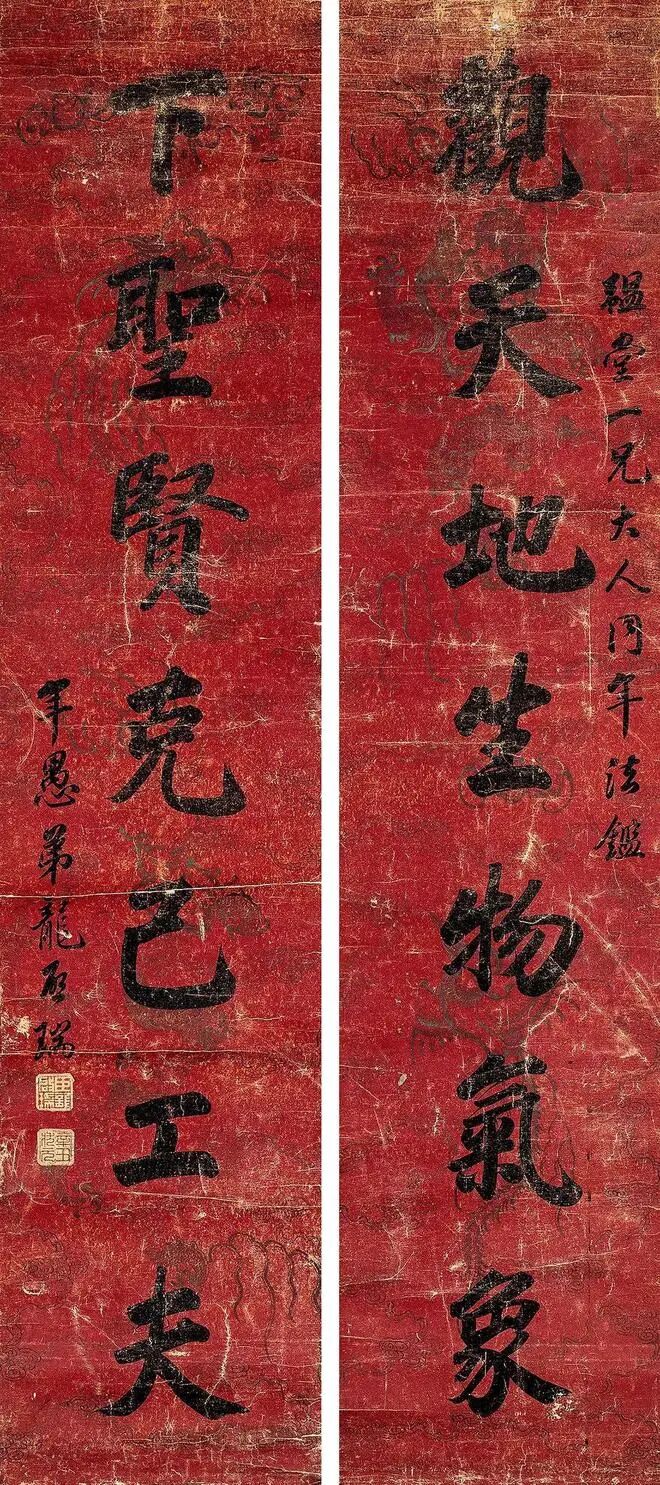 韞堂一兄大人同年法鑑
觀天地生物氣象
下聖賢克己工夫
年愚弟龍启瑞